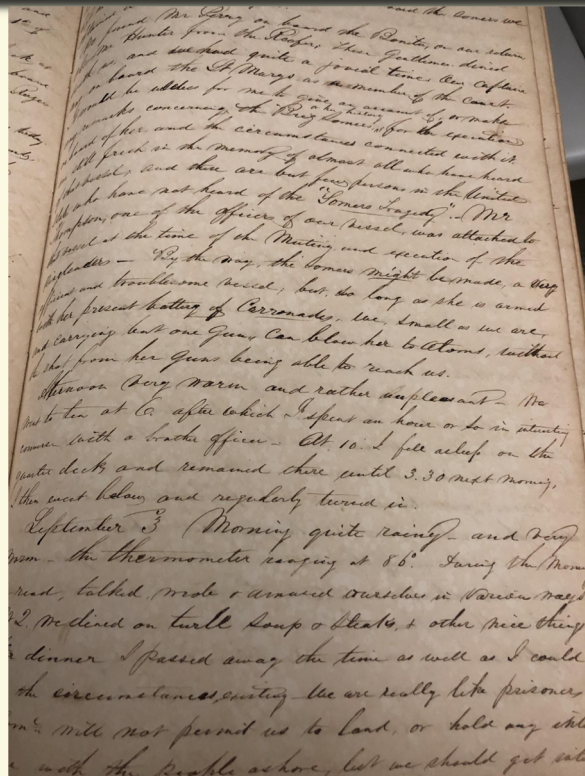 and the Somers we
found Mr Perry on board the Bonita, on our return
Mr Hunter from the Reefer, These Gentlemen dined
us, and we had quite a jovial time. Our Captain
on board the St Marys as a member of the court.
would be useless for me to give an account of, or make
remarks concerning the "Brig Somers", for the execution
on board of her and the circumstances connected with it
still fresh in the memory of almost all who have heard
this vessel, and there are but few persons in the United
who have not heard of the "Somers Tragedy". Mr
Thompson, one of the officers of our vessel, was attached to
this vessel at the time of the Mutiny and execution of the
Ringleaders — By the way, the Somers might be made, a very
and troublesome vessel, but, so long as she is armed
with her present battery of Carronades, we, small as we are,
and carrying but one Gun, can blow her to atoms, without
a shot from her Guns being able to reach us.
Afternoon very warm and rather unpleasant — We
went to tea at 6 after which I spent an hour or so in
with a brother officer — At 10. I fell asleep on the
quarter deck and remained there until 3.30 next morning,
I then went below and regularly turned in.
September 3 Morning quite rainy — and very
warm — the thermometer ranging at 86°. During the
read, talked, wrote & amused ourselves in various ways
2. we dined on turtle soup & steaks, & other nice things
dinner I passed away the time as well as I could
the circumstances existing. We are really like prisoners
will not permit us to land, or hold any
with the people ashore, lest we should get